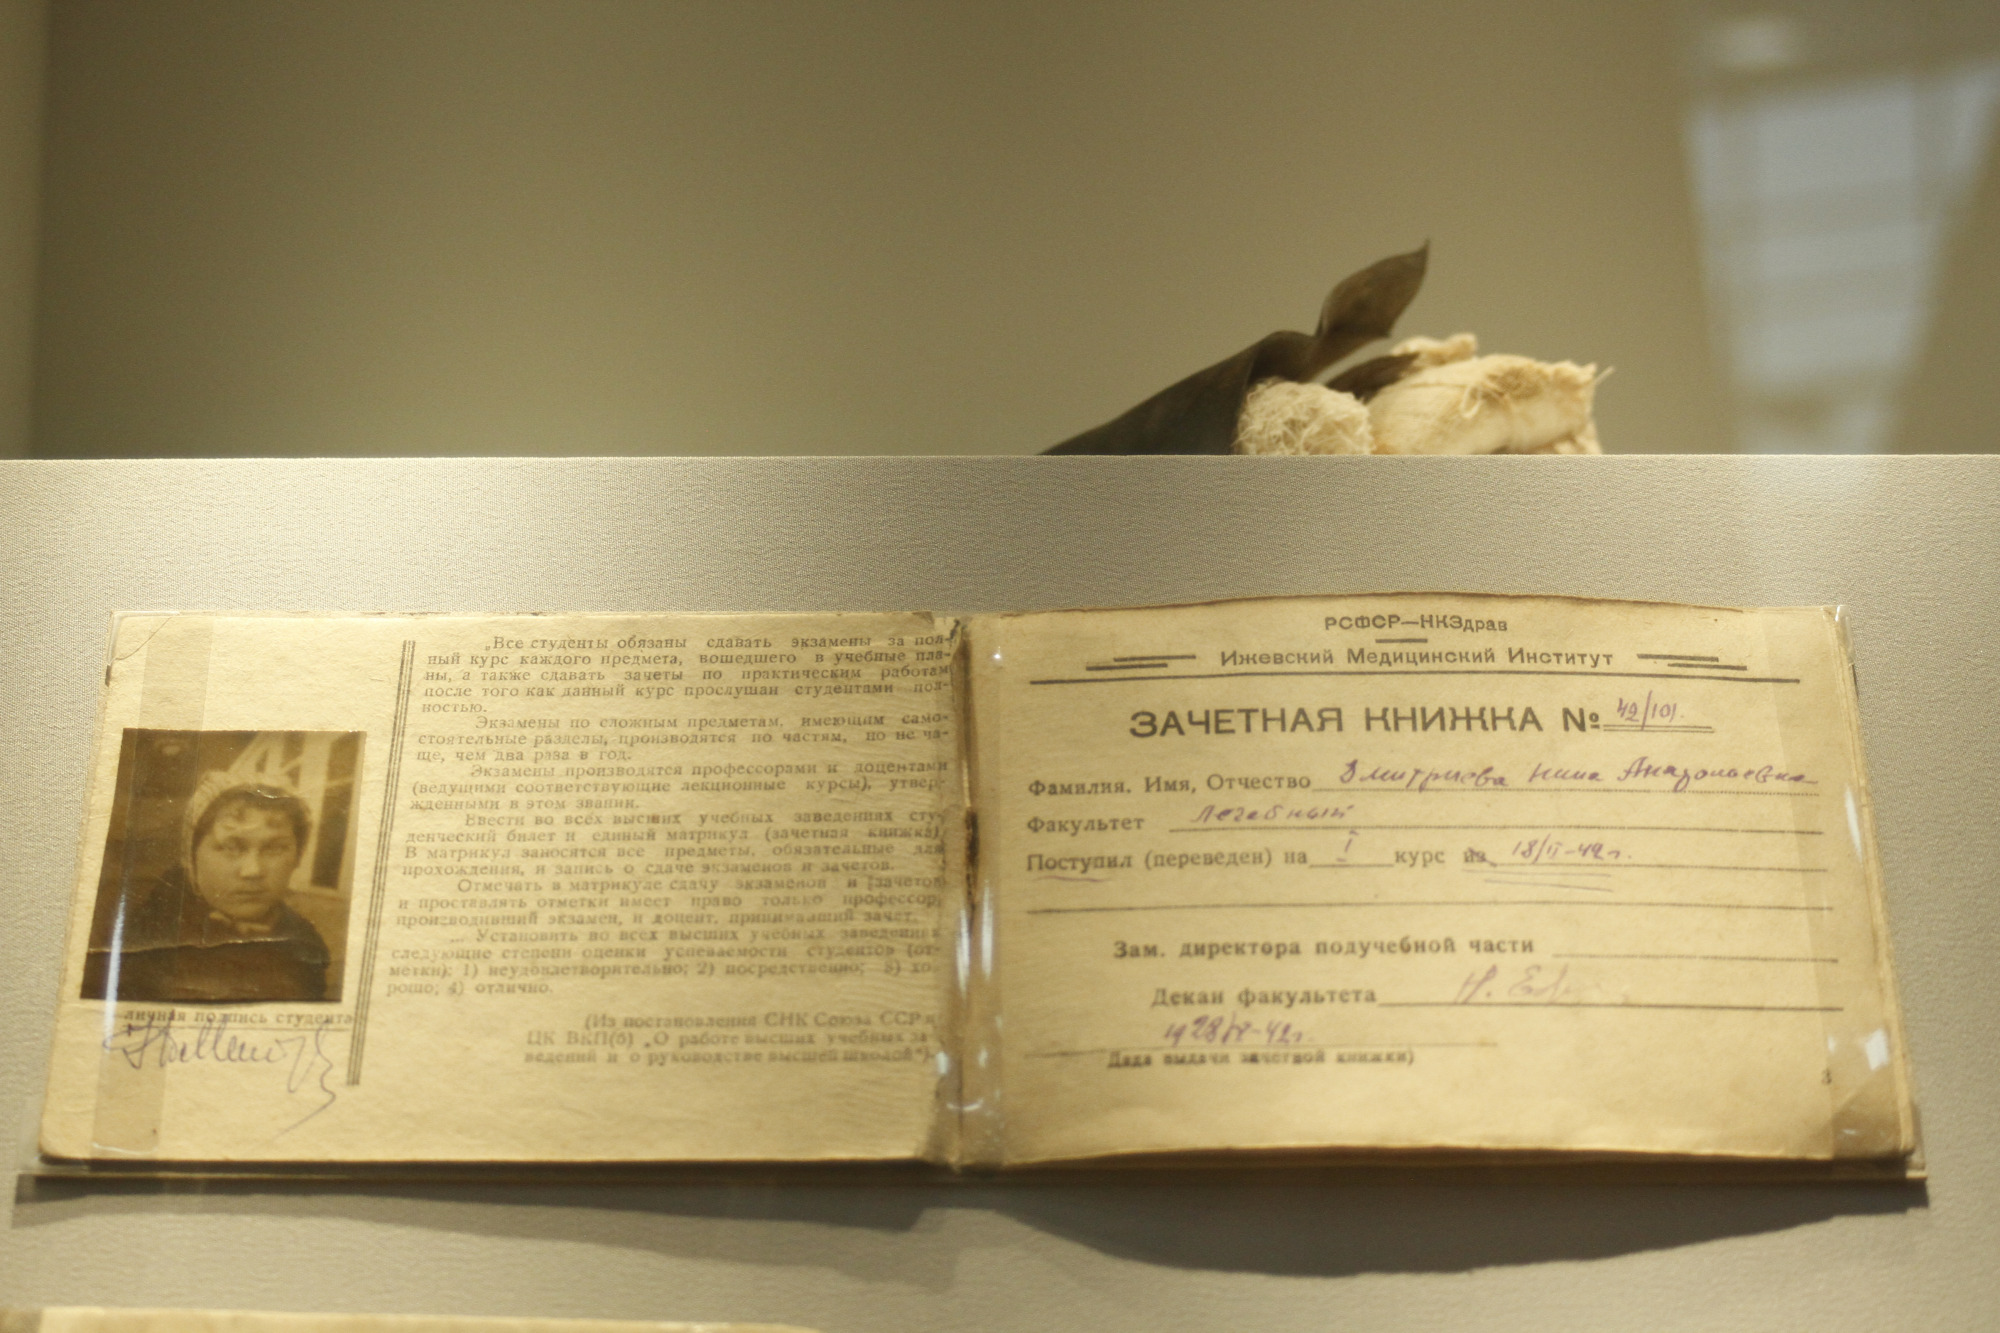 „Все студенты обязаны сдавать экзамены за пол-
ный курс каждого предмета, вошедшего в учебные пла-
ны, а также сдавать зачеты по практическим работам
после того как данный курс прослушан студентами пол-
ностью.
Экзамены по сложным предметам, имеющим само-
стоятельные разделы, производятся по частям, но не ча-
ще, чем два раза в год.
Экзамены производятся профессорами и доцентами
(ведущими соответствующие лекционные курсы), утвер-
жденными в этом звании.
Ввести во всех высших учебных заведениях сту-
денческий билет и единый матрикул (зачетная книжка).
В матрикул заносятся все предметы, обязательные для
прохождения, и запись о сдаче экзаменов и зачетов.
Отмечать в матрикуле сдачу экзаменов и зачетов
и проставлять отметки имеет право только профессор,
производивший экзамен, и доцент, принимавший зачет.
... Установить во всех высших учебных заведениях
следующие степени оценки успеваемости студентов (от-
метки): 1) неудовлетворительно; 2) посредственно; 3) хо-
рошо; 4) отлично.
(Из постановления СНК Союза ССР и
ЦК ВКП(б) „О работе высших учебных за-
ведений и о руководстве высшей школой“).
личная подпись студента
РСФСР—НКЗдрав
Ижевский Медицинский Институт
ЗАЧЕТНАЯ КНИЖКА № 42/101.
Фамилия. Имя, Отчество Дмитриева Нина Анатольевна
Факультет Лечебный
Поступил (переведен) на I курс из 18/II-42 г.
Зам. директора подучебной части
Декан факультета
28/IV-42 г.
Дата выдачи зачетной книжки)
3